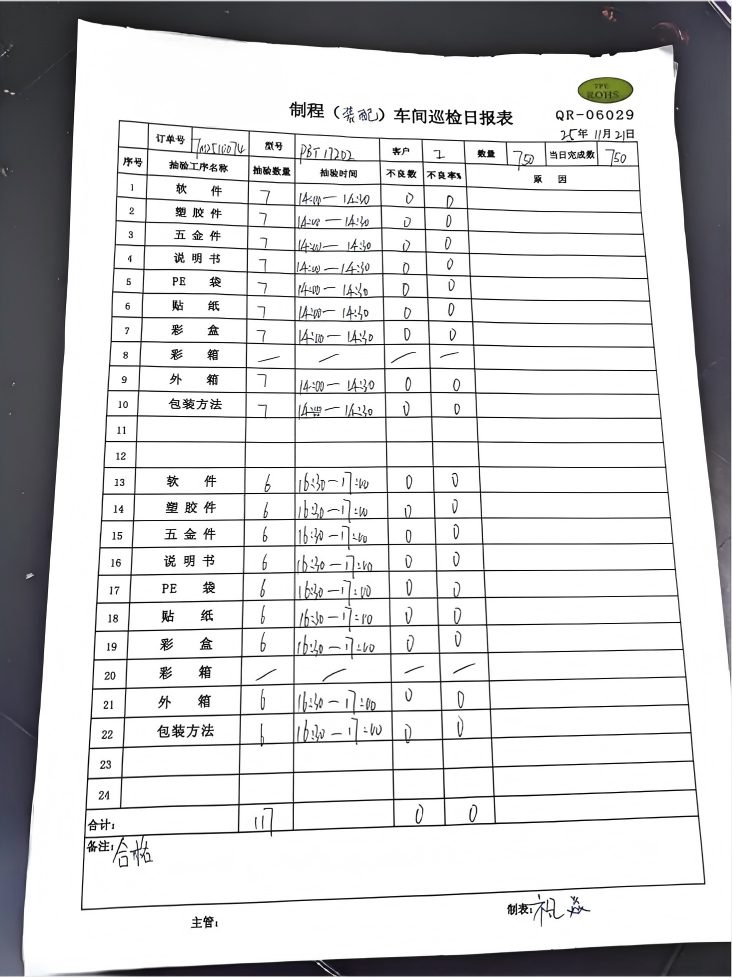 TPU
ROHS
制程（装配）车间巡检日报表
QR-06029
25年 11月 21日
订单号 型号 PBT17202 客户 1 数量 750 当日完成数 750
序号 抽验工序名称 抽验数量 抽验时间 不良数 不良率% 原 因
1 软 件 7 14:00—14:30 0 0
2 塑胶件 7 14:00—14:30 0 0
3 五金件 7 14:00—14:30 0 0
4 说明书 7 14:00—14:30 0 0
5 PE 袋 7 14:00—14:30 0 0
6 贴 纸 7 14:00—14:30 0 0
7 彩 盒 7 14:00—14:30 0 0
8 彩 箱 — — — —
9 外 箱 7 14:00—14:30 0 0
10 包装方法 7 14:00—14:30 0 0
11
12
13 软 件 6 16:30—17:00 0 0
14 塑胶件 6 16:30—17:00 0 0
15 五金件 6 16:30—17:00 0 0
16 说明书 6 16:30—17:00 0 0
17 PE 袋 6 16:30—17:00 0 0
18 贴 纸 6 16:30—17:00 0 0
19 彩 盒 6 16:30—17:00 0 0
20 彩 箱 — — — —
21 外 箱 6 16:30—17:00 0 0
22 包装方法 6 16:30—17:00 0 0
23
24
合计: 117 0 0
备注: 合格
主管: 制表: